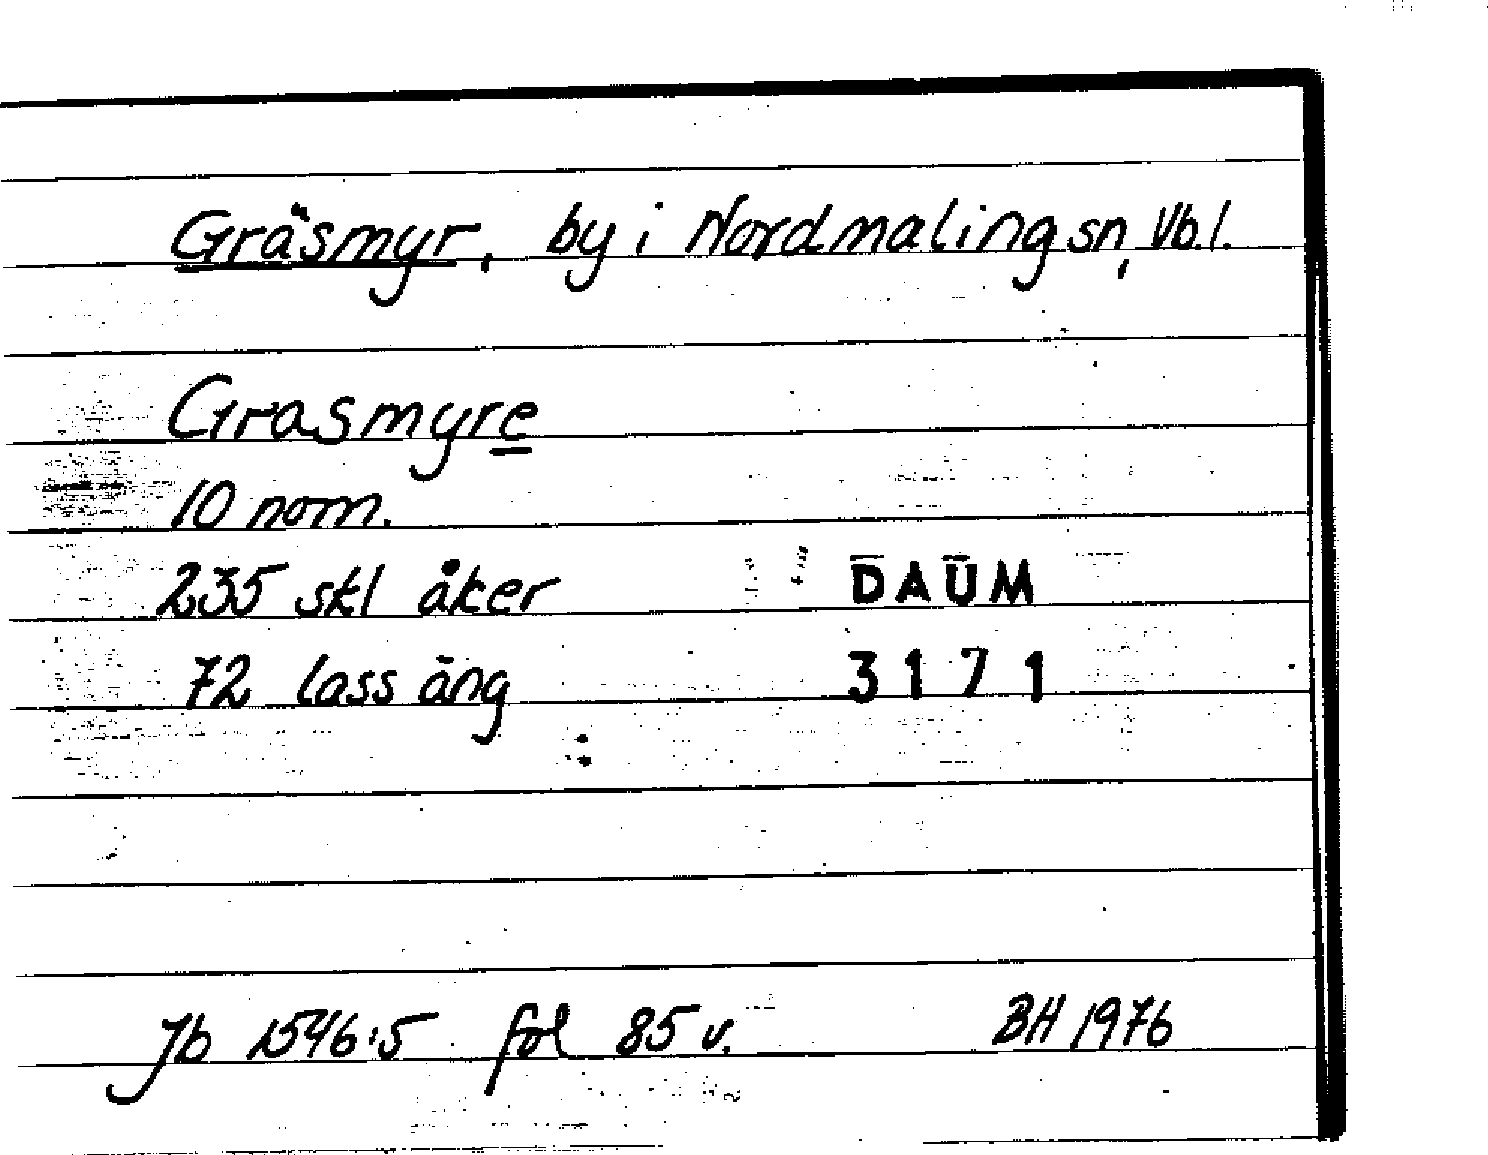 Gräsmyr, by i Nordmaling sn, Vb.l.
Grasmyre
10 nom.
235 skl åker
DAUM
72 lass äng
3171
Jb 1546:5 fol 85 v.
BH 1976